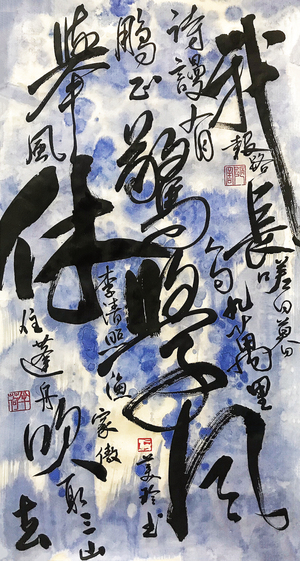 我報路長嗟日暮
学詩謾有驚人句
九萬里风
鵬正舉
風休住
蓬舟吹取三山去
李清照漁家傲